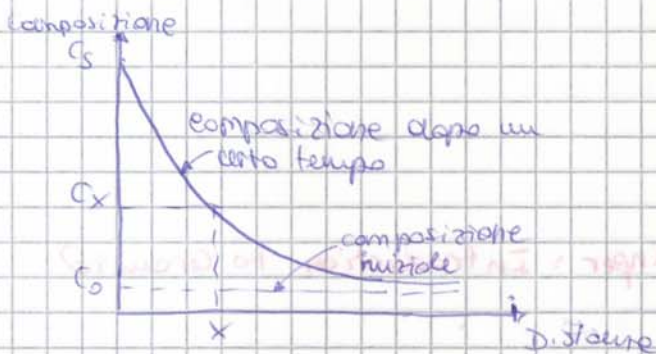 composizione
Cs
composizione dopo un
certo tempo
Cx
composizione
iniziale
Co
x
Distanza